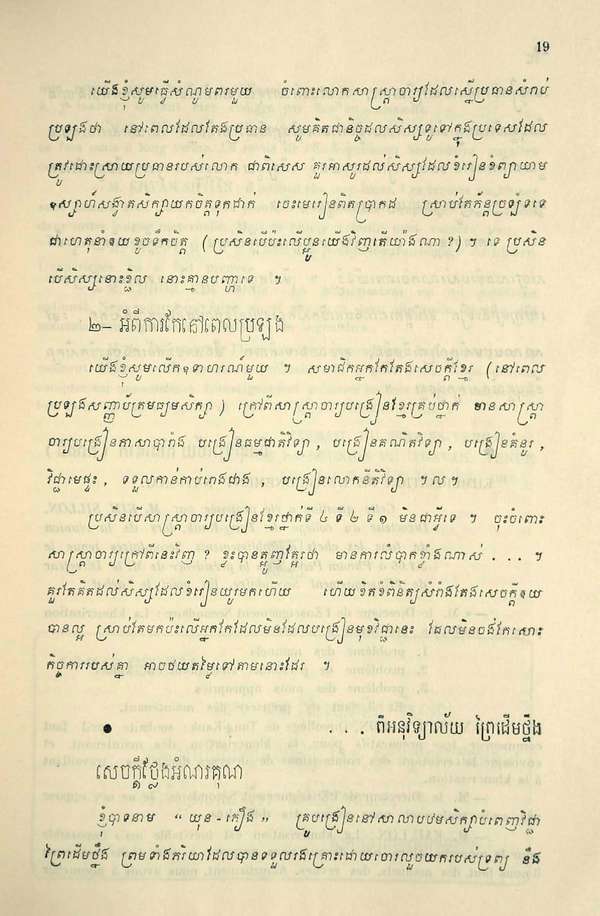 19
យើងខ្ញុំសូមធ្វើសំណូមពរមួយ ចំពោះលោកសាស្ត្រាចារ្យដែលស្នើប្រធានសំរាប់
ប្រឡងថា នៅពេលដែលតែងប្រធាន សូមគិតជានិច្ចដល់សិស្សទូទៅក្នុងប្រទេសដែល
ត្រូវដោះស្រាយប្រធានរបស់លោក ជាពិសេស គួរអាសូរដល់សិស្សដែលខំរៀនខំព្យាយាម
ឧស្សាហ៍សង្វាតសិក្សាយកចិត្តទុកដាក់ ចេះមេរៀនពិតប្រាកដ ស្រាប់តែភ័ន្តច្រឡំទទេ
ជាហេតុនាំឲយខូចទឹកចិត្ត ( ប្រសិនបើប៉ះលើប្អូនយើងវិញតើយ៉ាងណា ? ) ។ ទេ ប្រសិន
បើសិស្សនោះខ្ជិល នោះគ្មានបញ្ហាទេ ។
២– អំពីការកែនៅពេលប្រឡង
យើងខ្ញុំសូមលើកឧទាហរណ៍មួយ ។ សមាជិកអ្នកកែតែងសេចក្តីខ្មែរ ( នៅពេល
ប្រឡងសញ្ញាប័ត្រមធ្យមសិក្សា ) ក្រៅពីសាស្ត្រាចារ្យបង្រៀនខ្មែរគ្រប់ថ្នាក់ មានសាស្ត្រា
ចារ្យបង្រៀនភាសាបារាំង បង្រៀនធម្មជាតិវិទ្យា , បង្រៀនគណិតវិទ្យា , បង្រៀនគំនូរ ,
វិជ្ជាមេផ្ទះ , ទទួលកាន់កាប់រោងជាង , បង្រៀនលោកនីតិវិទ្យា ។ ល ។
ប្រសិនបើសាស្ត្រាចារ្យបង្រៀនខ្មែរថ្នាក់ទី ៤ ទី ២ ទី ១ មិនជាអ្វីទេ ។ ចុះចំពោះ
សាស្ត្រាចារ្យក្រៅពីនេះវិញ ? ខ្លះបានត្អូញត្អែរថា មានការលំបាកខ្លាំងណាស់ . . . ។
គួរតែគិតដល់សិស្សដែលខំរៀនយូរមកហើយ ហើយខិតខំពិនិត្យសំរាំងតែងសេចក្តីឲយ
បានល្អ ស្រាប់តែមកប៉ះលើអ្នកកែដែលមិនដែលបង្រៀនមុខវិជ្ជានេះ ដែលមិនចង់កែសោះ
កិច្ចការរបស់គ្នា អាចថយតម្លៃទៅតាមនោះដែរ ។
● . . . ពីអនុវិទ្យាល័យ ព្រៃដើមថ្នឹង
សេចក្តីថ្លែងអំណរគុណ
ខ្ញុំបាទនាម “ យុន - ភឿង » គ្រូបង្រៀននៅសាលាបឋមសិក្សាបំពេញវិជ្ជា
ព្រៃដើមថ្នឹង ព្រមទាំងភរិយាដែលបានទទួលរងគ្រោះដោយចោរលួចយករបស់ទ្រព្យ នឹង